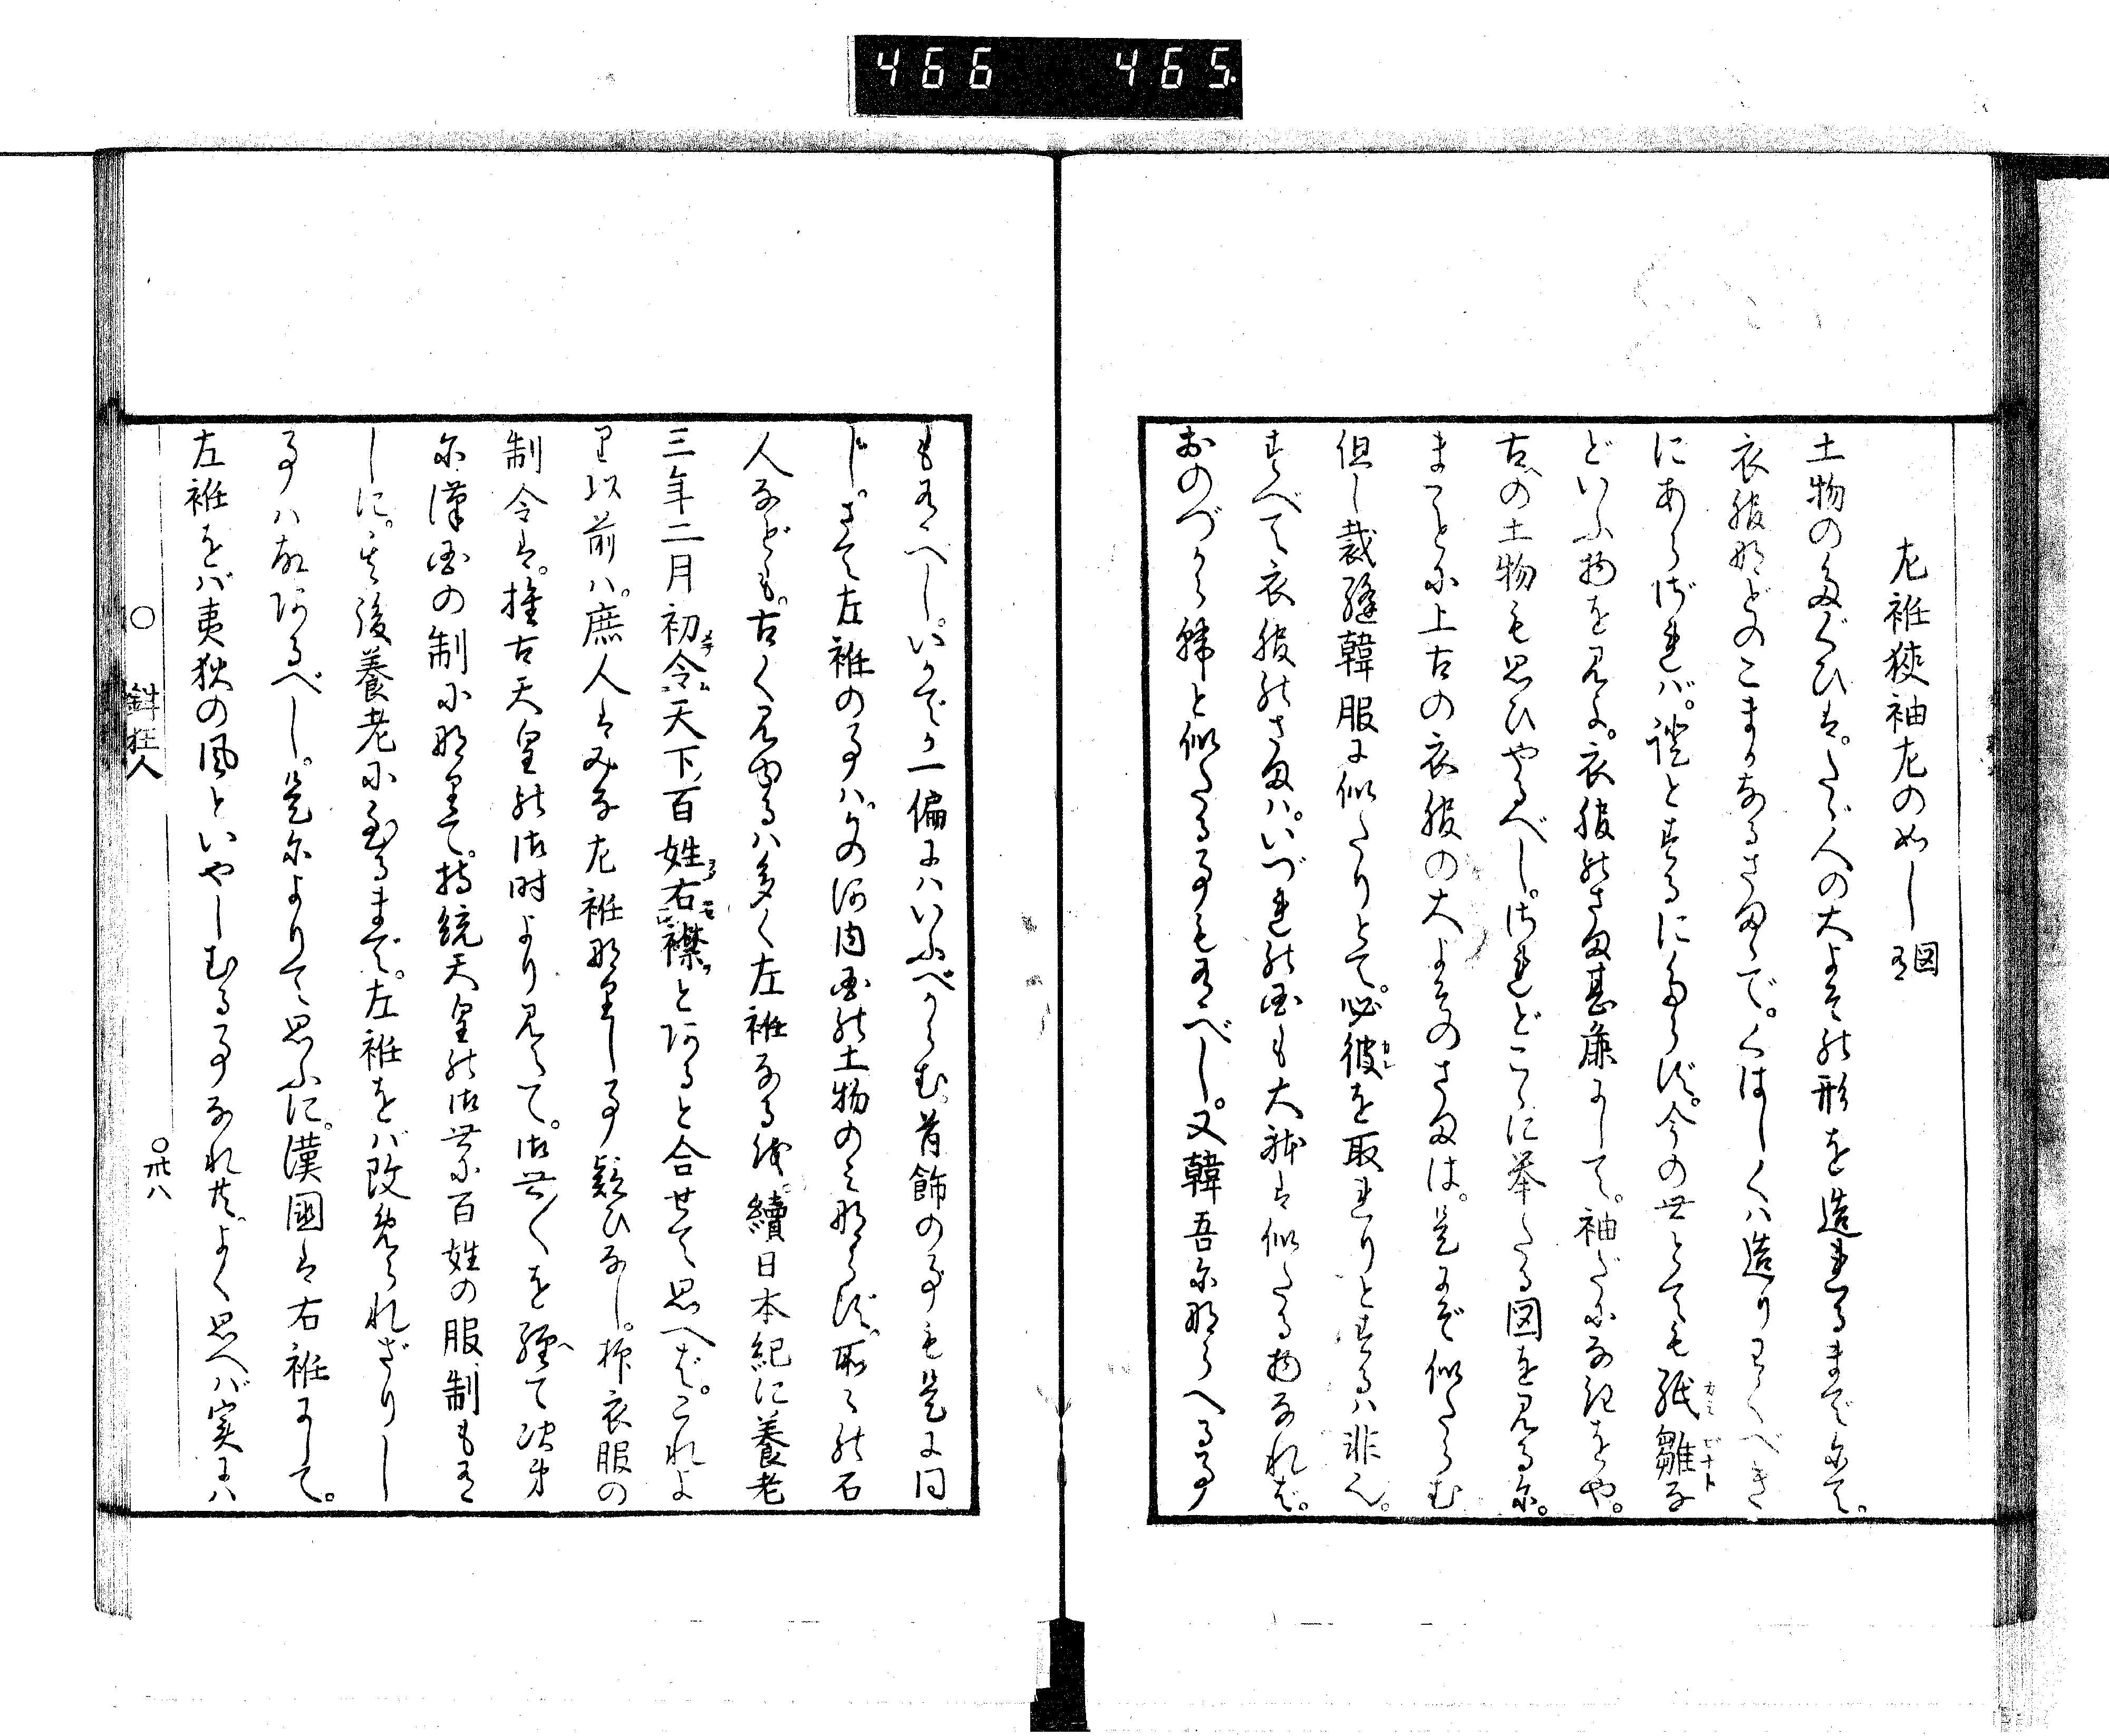 466 465
左衽狭袖左のめし 図有
土物のたぐひは。たゞ人の大よその形を造れるまでにて。
衣服などのこまかなるさままで。くはしくハ造りわくべき
にあらざれバ。證とするにたらず。今の世とても紙雛な
どいふ物を見よ。衣服のさま甚廉にして。袖だになきをや。
古の土物も思ひやるべし。されどこゝに挙たる図を見るに。
まことに上古の衣服の大よそのさまは。是にぞ似たらむ
但し裁縫韓服に似たりとて。必彼を取れりとするハ非也。
すべて衣服のさまハ。いづれの国も大躰は似たる物なれば。
おのづから韓と似たる事も有べし。又韓吾にならへる事
も有べし。いかでか一偏にハいふべからむ。首飾の事も是に同
じ。さて左衽の事ハ。かの河内国の土物のミならず。取々の石
人なども。古く見ゆるハ多く左衽なる儀。續日本紀に養老
三年二月初令天下百姓右襟とあると合せて思へば。これよ
り以前ハ。庶人はみな左衽なりし事疑ひなし。抑衣服の
制令は。推古天皇の御時より見えて。御世〱を経て次第
に漢国の制になりて。持統天皇の御世に百姓の服制も有
しに。其後養老に至るまで。左衽をバ改められざりし
事ハ故あるべし。是によりて思ふに。漢國は右衽にして。
左衽をバ夷狄の風といやしむる事なれ共。よく思へバ実ハ
○ 鉗狂人
○卅八